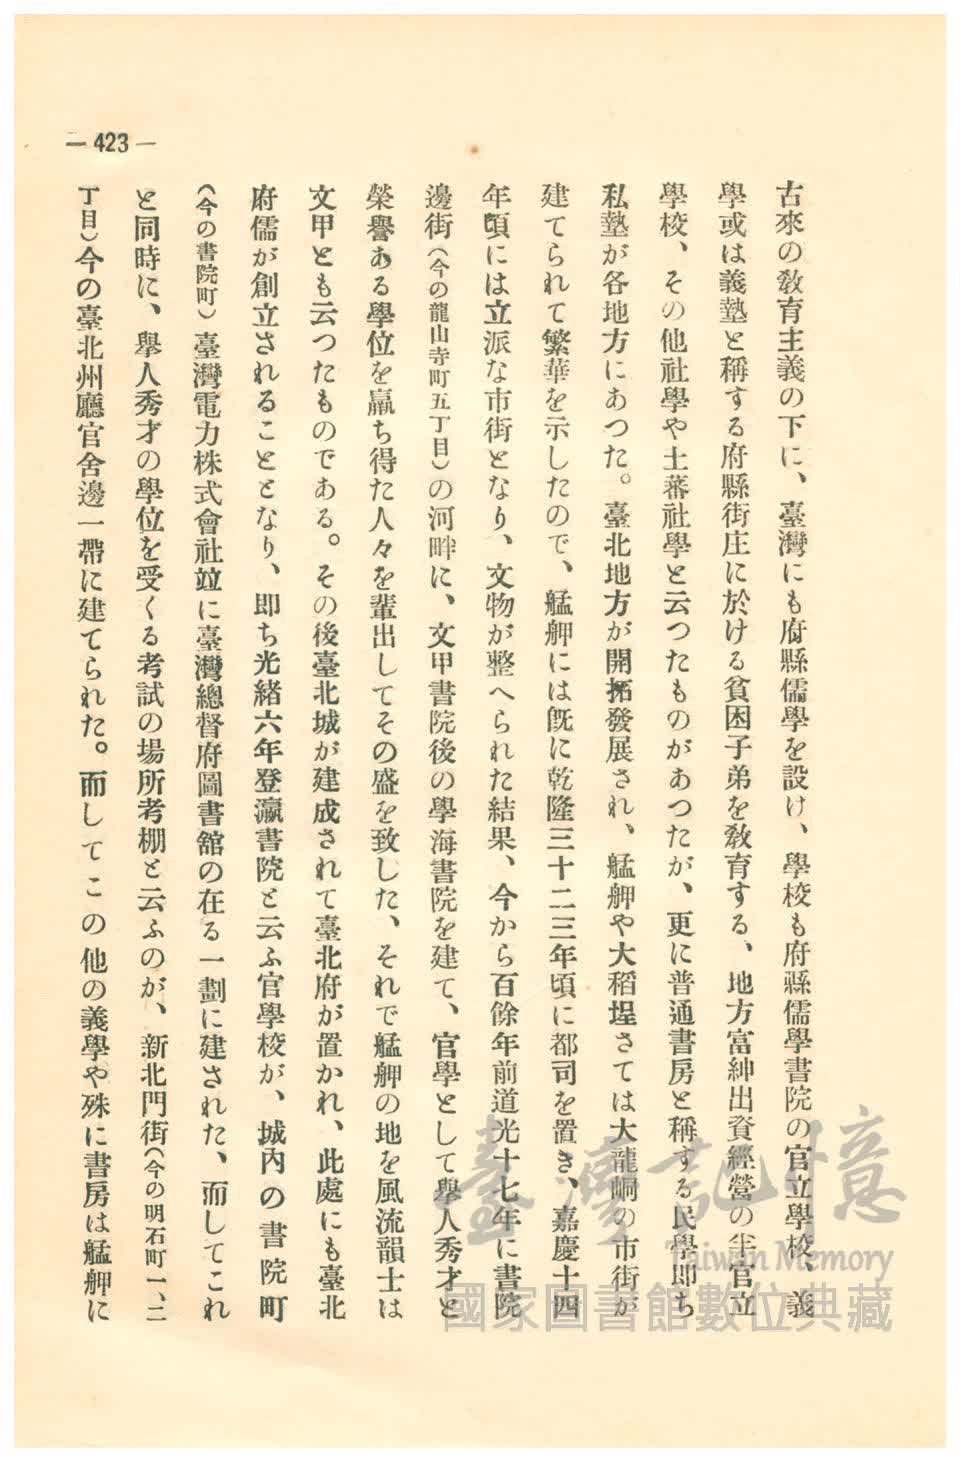 — 423 —
古來の敎育主義の下に、臺灣にも府縣儒學を設け、學校も府縣儒學書院の官立學校、義
學或は義塾と稱する府縣街庄に於ける貧困子弟を敎育する、地方富紳出資經營の半官立
學校、その他社學や土蕃社學と云つたものがあつたが、更に普通書房と稱する民學卽ち
私塾が各地方にあつた。臺北地方が開拓發展され、艋舺や大稻埕さては大龍峒の市街が
建てられて繁華を示したので、艋舺には旣に乾隆三十二三年頃に都司を置き、嘉慶十四
年頃には立派な市街となり、文物が整へられた結果、今から百餘年前道光十七年に書院
邊街(今の龍山寺町五丁目)の河畔に、文甲書院後の學海書院を建て、官學として擧人秀才と
榮譽ある學位を贏ち得た人々を輩出してその盛を致した、それで艋舺の地を風流韻士は
文甲とも云つたものである。その後臺北城が建成されて臺北府が置かれ、此處にも臺北
府儒が創立されることとなり、卽ち光緖六年登瀛書院と云ふ官學校が、城內の書院町
(今の書院町)臺灣電力株式會社竝に臺灣總督府圖書館の在る一劃に建された、而してこれ
と同時に、擧人秀才の學位を受くる考試の場所考棚と云ふのが、新北門街(今の明石町一、二
丁目)今の臺北州廳官舍邊一帶に建てられた。而してこの他の義學や殊に書房は艋舺に
臺灣記憶
Taiwan Memory
國家圖書館數位典藏